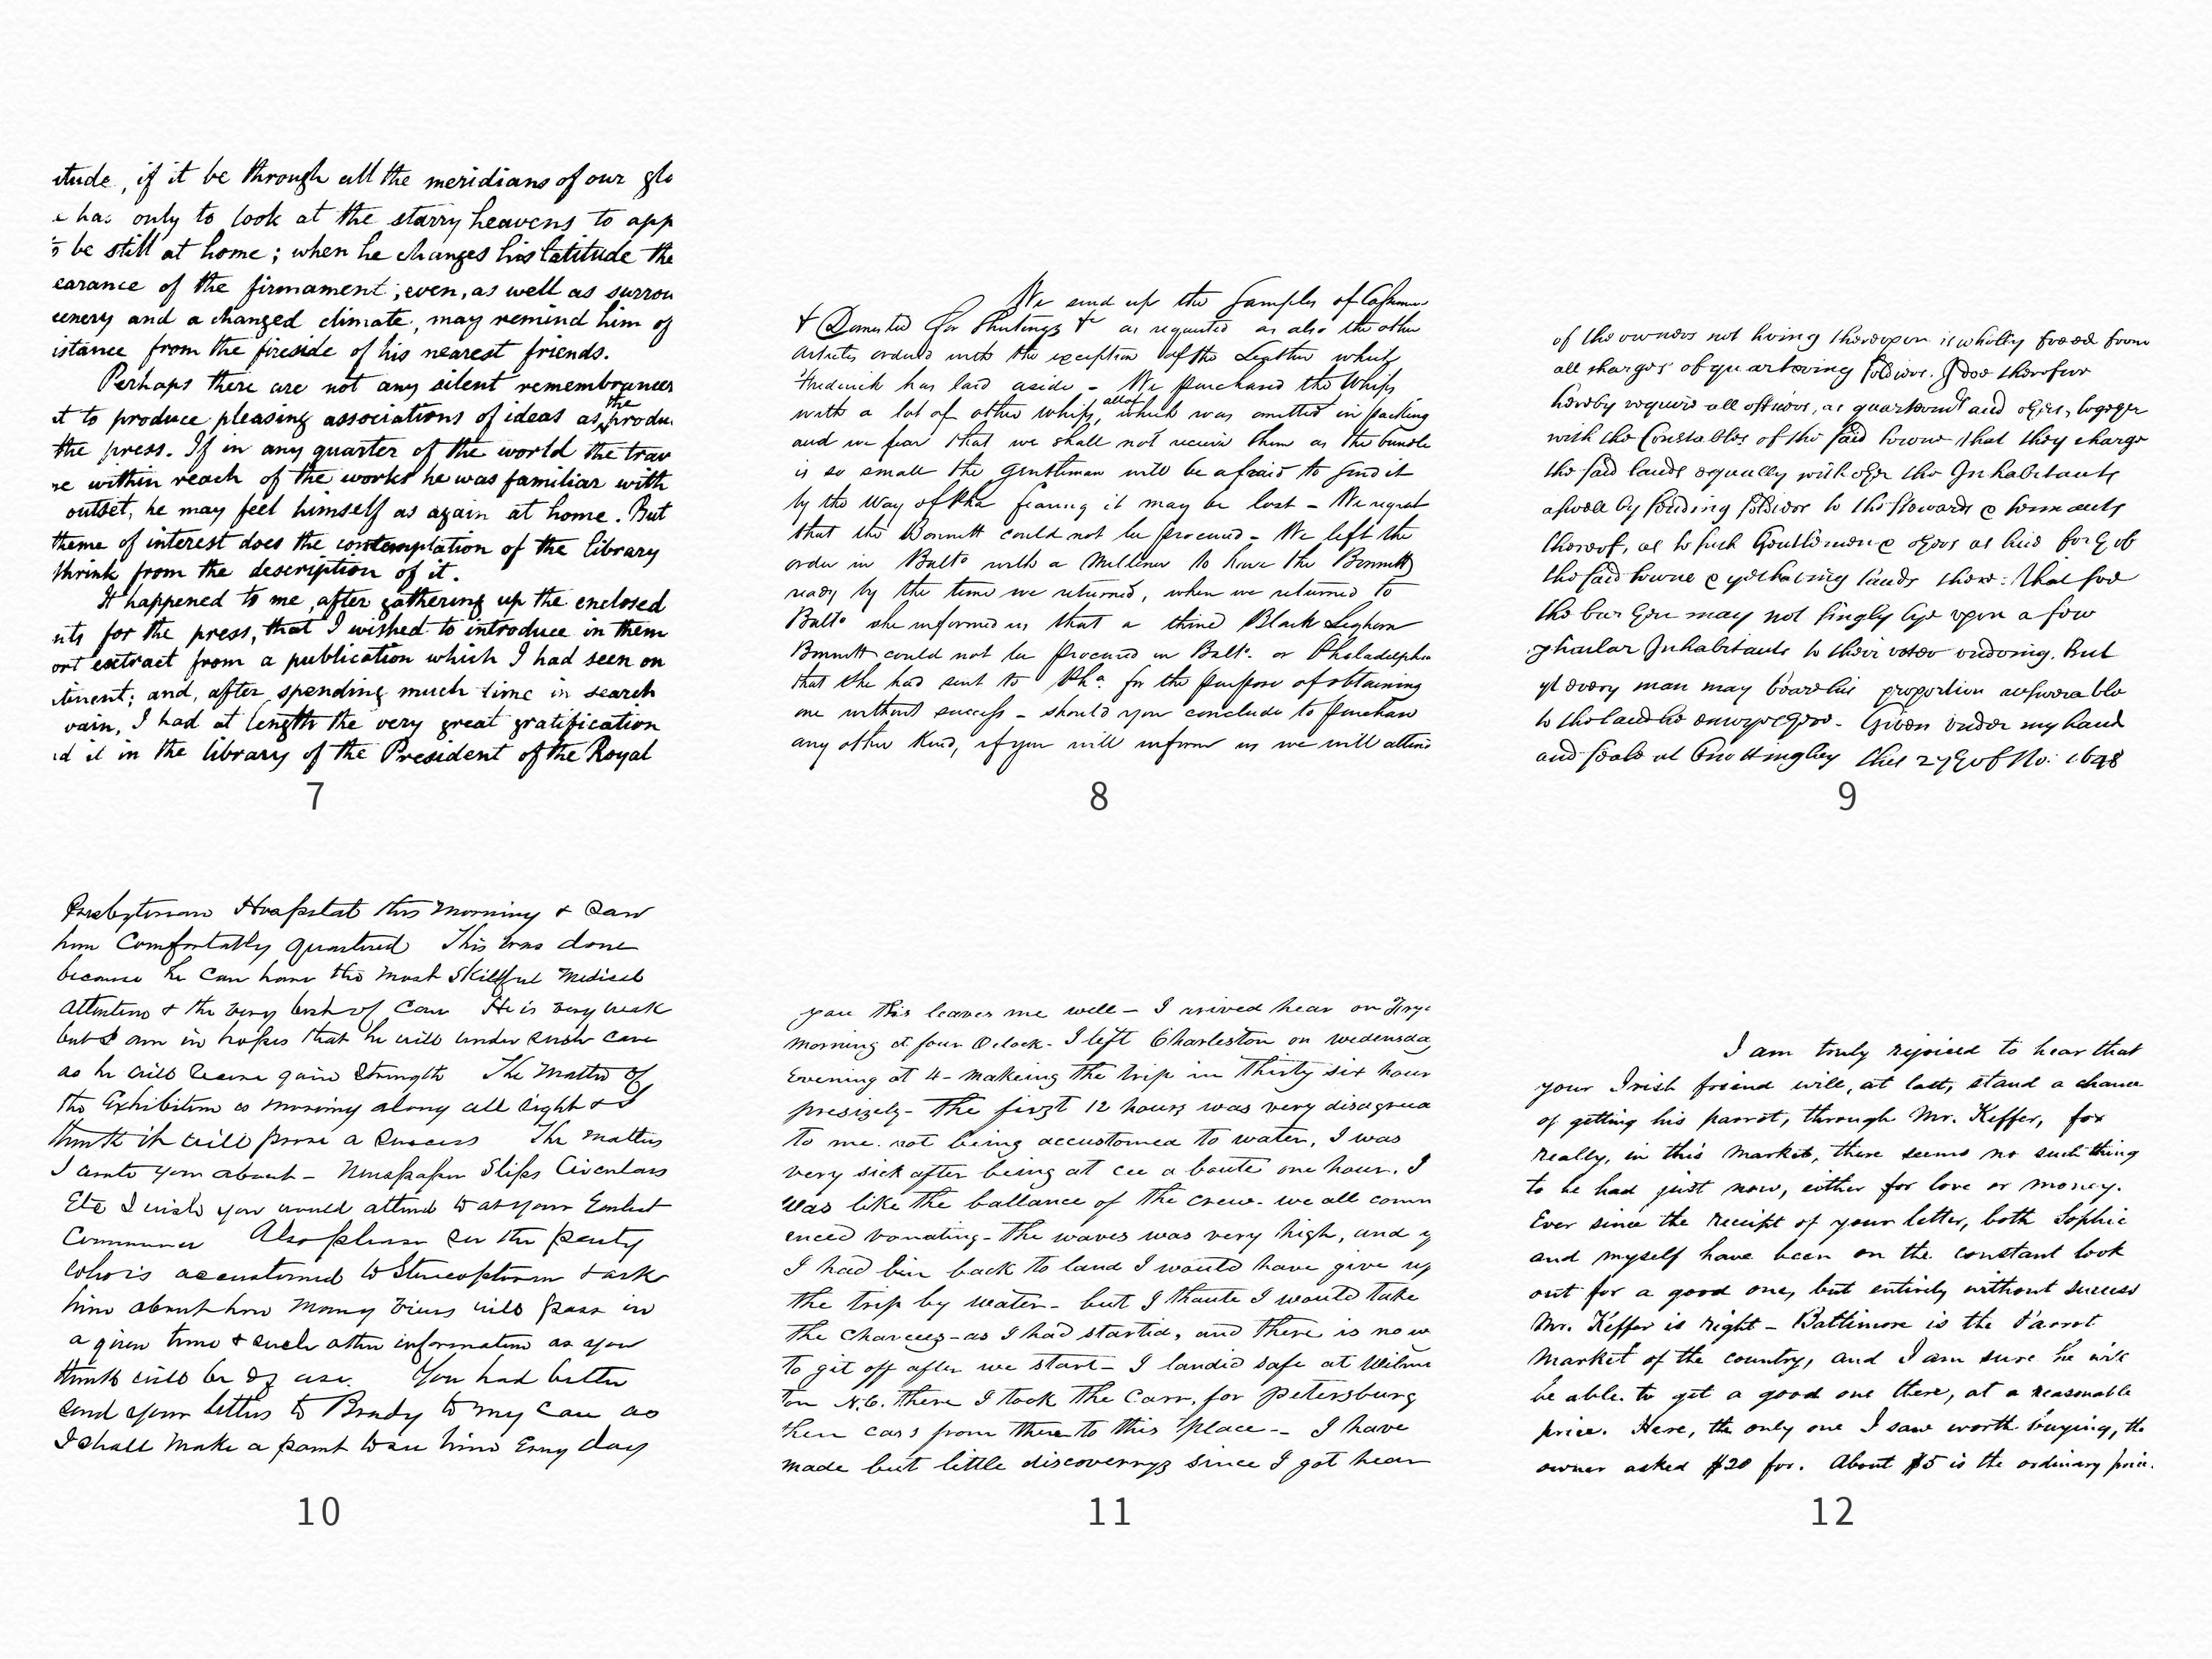 itude, if it be through all the meridians of our glo
e has only to look at the starry heavens to app
o be still at home; when he changes his latitude the
earance of the firmament, even, as well as surrou
cenery and a changed climate, may remind him of
istance from the fireside of his nearest friends.
Perhaps there are not any silent remembrances
t to produce pleasing associations of ideas as the produ
the press. If in any quarter of the world the trav
re within reach of the works he was familiar with
outset, he may feel himself as again at home. But
theme of interest does the contemplation of the library
thrink from the description of it.
It happened to me, after gathering up the enclosed
nts for the press, that I wished to introduce in them
ort extract from a publication which I had seen on
tinent; and, after spending much time in search
vain, I had at length the very great gratification
d it in the library of the President of the Royal
7
We send up the Samples of
& Domestic for Sheetings &c as requested as also the other
articles ordered with the exception of the Leather which
Frederick has laid aside - We purchased the Whips
with a lot of other whips, all of which was omitted in packing
and we fear that we shall not receive them as the bundle
is so small the gentleman will be afraid to send it
by the way of Pha fearing it may be lost - We regret
that the Bonnett could not be procured - We left the
order in Balto with a Milliner to have the Bonnett
ready by the time we returned, when we returned to
Balto she informed us that a third Black Leghorn
Bonnett could not be procured in Balto. or Philadelphia
that she had sent to Pha. for the purpose of obtaining
one without success - should you conclude to purchase
any other Kind, if you will inform us we will attend
8
of the owners not living thereupon is wholly freed from
all charges of quartering soldiers. I doe therefore
hereby require all officers, as quartermrs and others, together
with the Constables of the said towne that they charge
the said lands equally with other the Inhabitants
aswell by sending soldiers to the stewards & tennants
thereof, as to such Gentlemen & others as live forth of
the said towne & yet having lands there: that soe
the burthen may not singly lye upon a few
pticular Inhabitants to their utter undoing. But
yt every man may beare his proportion answerable
to the land he Given under my hand
and seale at Knottingley this 27th of No: 1648
9
Presbyterian Hospital this morning & saw
him Comfortably quartered This was done
because he can have the most skillful medical
attention & the very best of care He is very weak
but I am in hopes that he will under such care
as he will receive gain strength The matter of
the Exhibition is moving along all right & I
think it will prove a success The matters
I wrote you about - Newspaper Slips Circulars
Etc I wish you would attend to at your Earliest
Also please see the party
who is accustomed to Stereopticon & ask
him about how many views will pass in
a given time & such other information as you
think will be of use. You had better
send your letters to Brady to my care as
I shall make a point to see him Every day
10
you this leaves me well - I arived hear on
morning at four Oclock - I left Charleston on wedensday
Evening at 4 - makeing the trip in thirty six hour
presizely - the first 12 hours was very disagrea
to me. not being accustomed to water, I was
very sick after being at cee a boute one hour. I
was like the ballance of the crew - we all comm
enced vomating - the waves was very high, and if
I had bin back to land I would have give up
the trip by water - but I thaute I would take
the chances - as I had startid, and there is no w
to git off after we start - I landid safe at Wilmi
ton N.C. there I took the Carrs, for petersburg
then cars from there to this place -- I have
made but little discoverrys since I got hear
11
I am truly rejoiced to hear that
your Irish friend will, at last, stand a chance
of getting his parrot, through Mr. Keffer, for
really, in this market, there seems no such thing
to be had just now, either for love or money.
Ever since the receipt of your letter, both Sophie
and myself have been on the constant look
out for a good one, but entirely without success
Mr. Keffer is right - Baltimore is the Parrot
market of the country, and I am sure he will
be able to get a good one there, at a reasonable
price. Here, the only one I saw worth buying, the
owner asked $20 for. About $5 is the ordinary price.
12